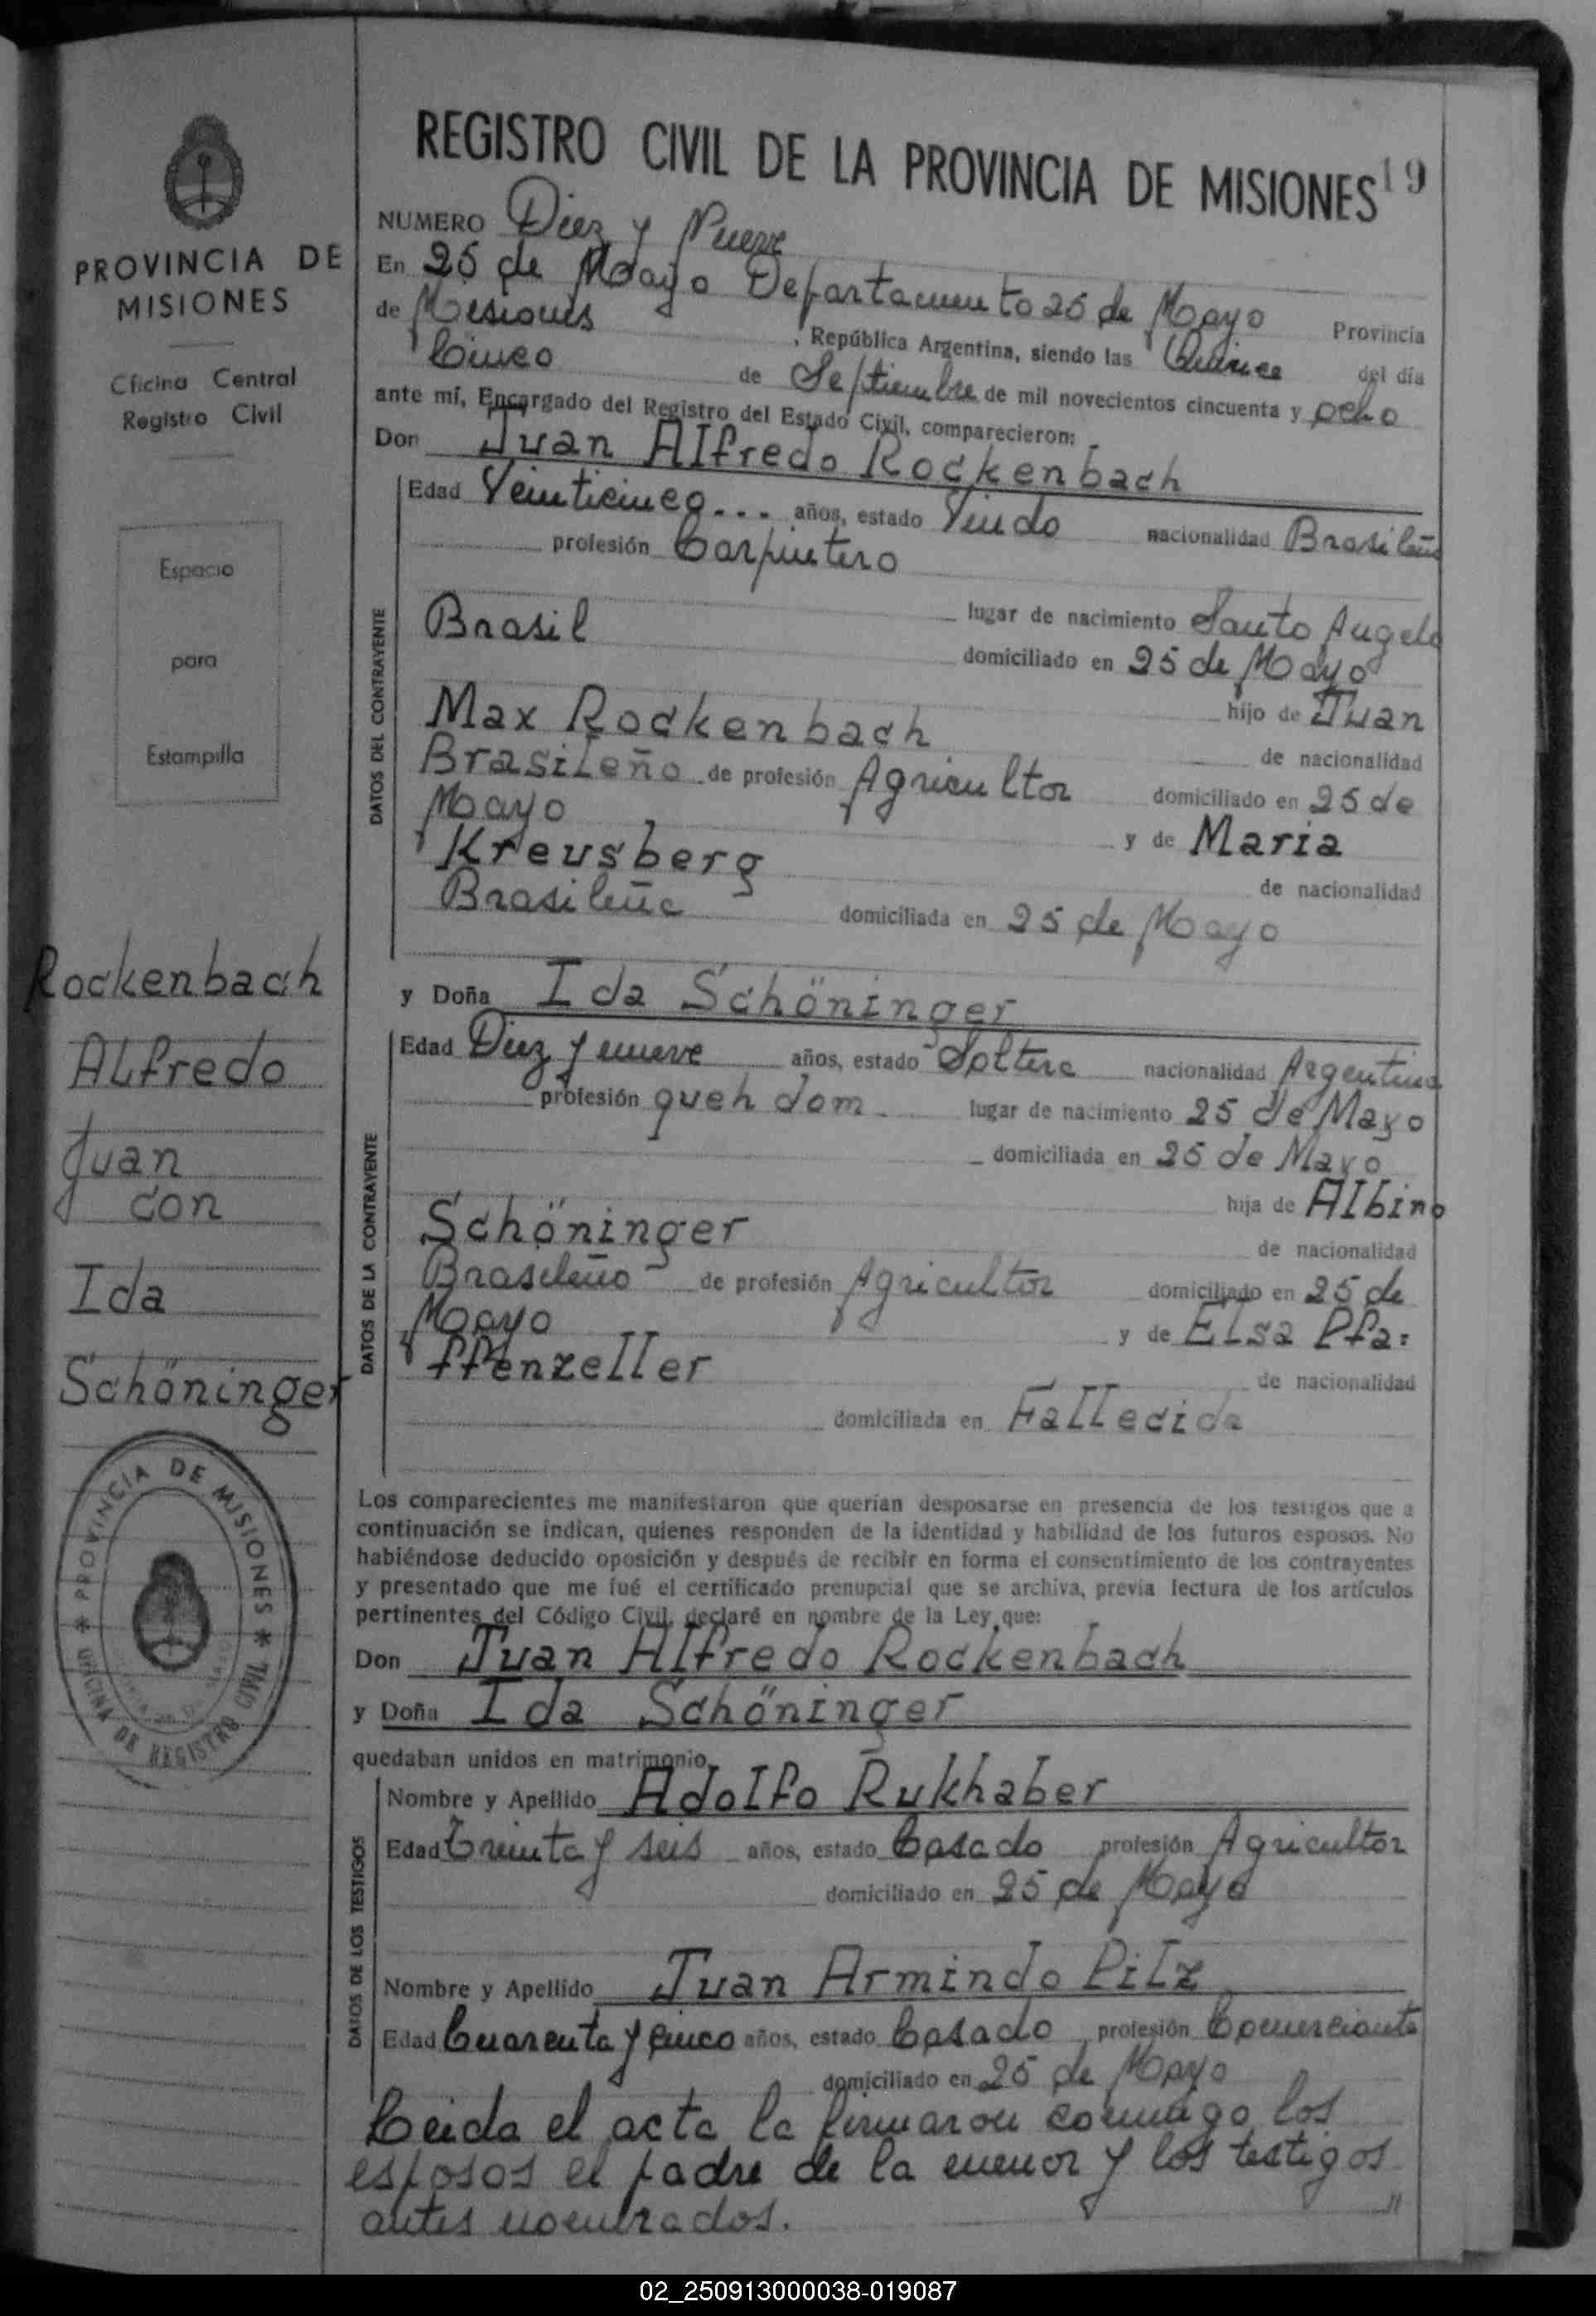 PROVINCIA DE
MISIONES
Oficina Central
Registro Civil
Espacio
para
Estampilla
Rockenbach
Alfredo
Juan
con
Ida
Schöninger
PROVINCIA DE MISIONES
OFICINA DE REGISTRO CIVIL
REGISTRO CIVIL DE LA PROVINCIA DE MISIONES 19
NUMERO Diez y Nueve
En 25 de Mayo Departamento 25 de Mayo Provincia
de Misiones, República Argentina, siendo las Quince del día
Cinco de Septiembre de mil novecientos cincuenta y ocho
ante mí, Encargado del Registro del Estado Civil, comparecieron:
Don Juan Alfredo Rockenbach
DATOS DEL CONTRAYENTE
Edad Veinticinco... años, estado Viudo nacionalidad Brasileño
profesión Carpintero
lugar de nacimiento Santo Angelo
Brasil
domiciliado en 25 de Mayo
hijo de Juan
Max Rockenbach
de nacionalidad
Brasileño de profesión Agricultor domiciliado en 25 de
Mayo y de Maria
Kreusberg
de nacionalidad
Brasileña domiciliada en 25 de Mayo
y Doña Ida Schöninger
DATOS DE LA CONTRAYENTE
Edad Diez y nueve años, estado Soltera nacionalidad Argentina
profesión queh dom lugar de nacimiento 25 de Mayo
domiciliada en 25 de Mayo
hija de Albino
Schöninger
de nacionalidad
Brasileño de profesión Agricultor domiciliado en 25 de
Mayo y de Elsa Pfa=
ffenzeller
de nacionalidad
domiciliada en Fallecida
Los comparecientes me manifestaron que querían desposarse en presencia de los testigos que a
continuación se indican, quienes responden de la identidad y habilidad de los futuros esposos. No
habiéndose deducido oposición y después de recibir en forma el consentimiento de los contrayentes
y presentado que me fué el certificado prenupcial que se archiva, previa lectura de los artículos
pertinentes del Código Civil, declaré en nombre de la Ley que:
Don Juan Alfredo Rockenbach
y Doña Ida Schöninger
quedaban unidos en matrimonio.
DATOS DE LOS TESTIGOS
Nombre y Apellido Adolfo Rukhaber
Edad Treinta y seis años, estado Casado profesión Agricultor
domiciliado en 25 de Mayo
Nombre y Apellido Juan Armindo Pilz
Edad Cuarenta y cinco años, estado Casado profesión Comerciante
domiciliado en 25 de Mayo
Leida el acta la firmaron conmigo los
esposos el padre de la menor y los testigos
antes nombrados.
02_250913000038-019087